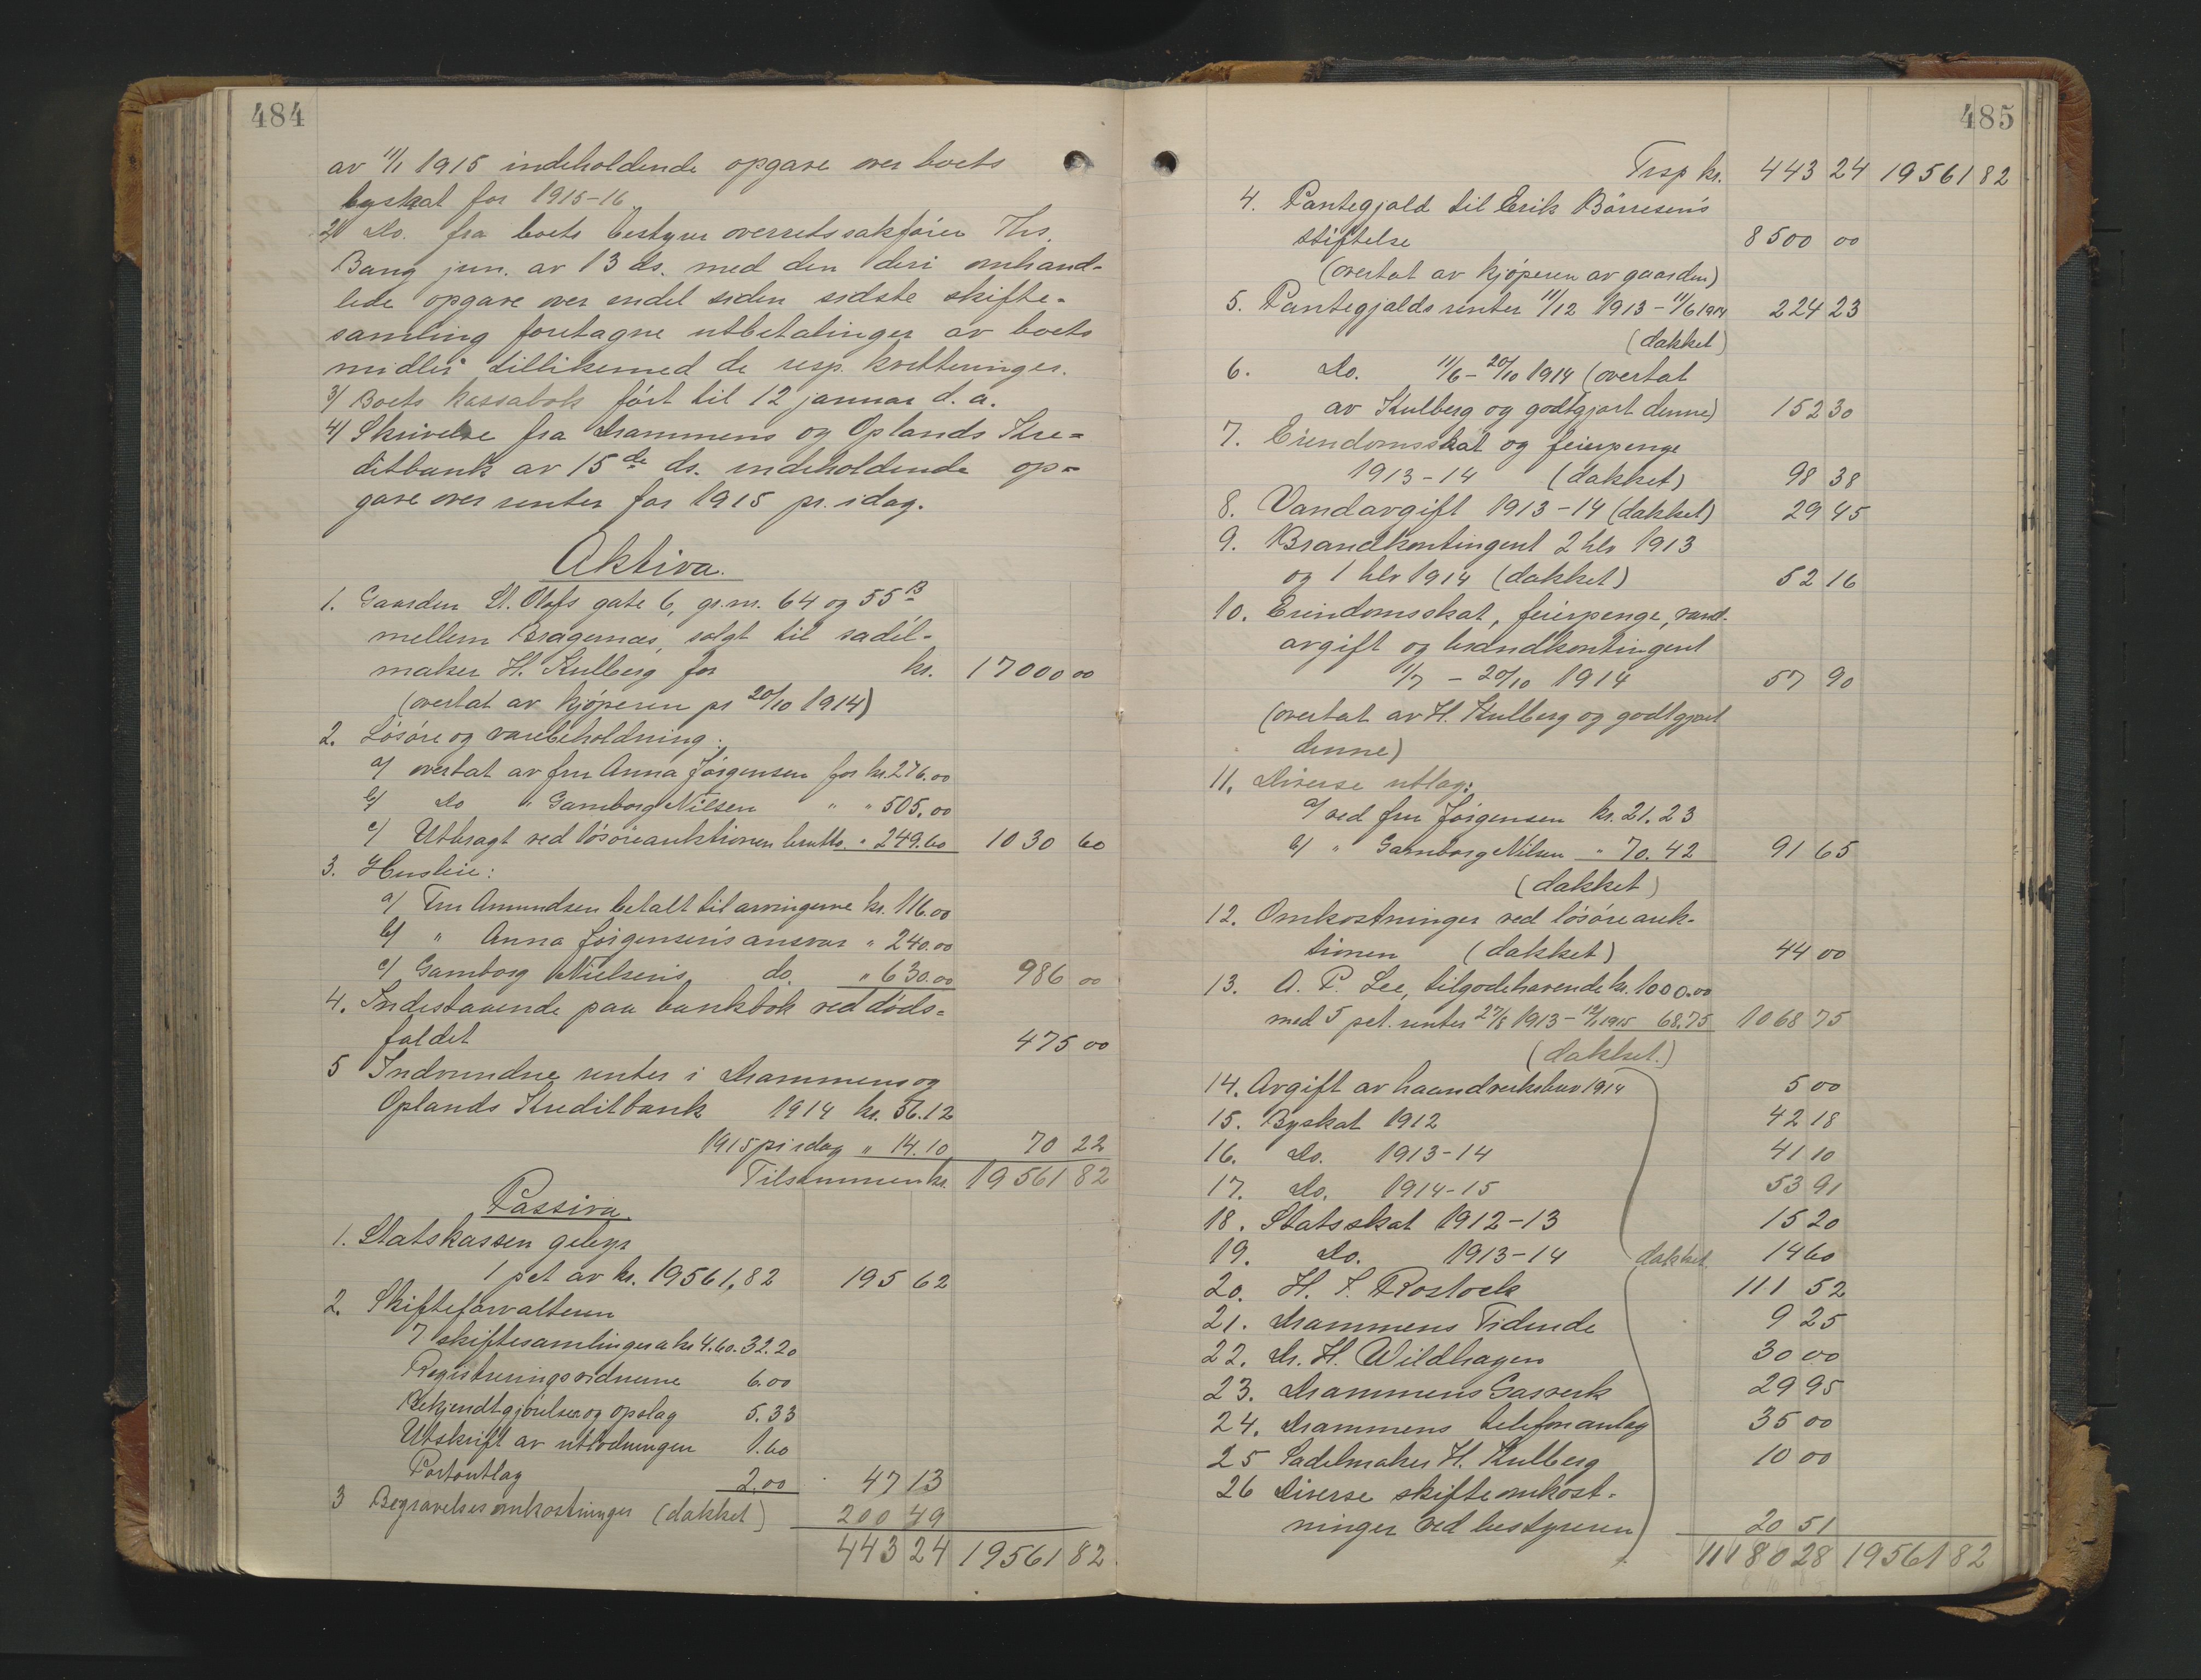 484
av 11/1 1915 indeholdende opgave over boets
byskat for 1915-16.
2/ Do. fra boets bestyrer overretssakfører Ths.
Bang jun. av 13 ds. med den deri omhand-
lede opgave over endel siden sidste skifte-
samling foretagne utbetalinger av boets
midler tillikemed de resp. kvitteringer.
3/ Boets kassabok ført til 12 januar d. a.
4/ Skrivelse fra Drammens og Oplands Kre-
ditbank av 15de ds. indeholdende op-
gave over renter for 1915 pr. idag.
Aktiva.
1. Gaarden St. Olafs gate 6, gr.nr. 64 og 55 B
mellem Bragernæs, solgt til sadel-
maker H. Kulberg for kr. 17000 00
(overtat av kjøperen pr 20/10 1914)
2. Løsøre og varebeholdning:
a/ overtat av fru Anna Jørgensen for kr. 276.00
b/ Do " Gamborg Nilsen " " 505.00
c/ Utbragt ved løsøreauktionen brutto. " 249.60 1030 60
3. Husleie:
a/ Fru Amundsen betalt til arvingerne kr. 116.00
b/ " Anna Jørgensens ansvar " 240.00
c/ Gamborg Nielsens do. " 630.00 986 00
4. Indestaaende paa bankbok ved døds-
faldet 475 00
5 Indvundne renter i Drammens og
Oplands Kreditbank 1914 kr. 56.12
1915 pr idag " 14.10 70 22
Tilsammen kr. 19561 82
Passiva.
1. Statskassen gebyr
1 pct av kr. 19561,82 195 62
2. Skifteforvalteren
7 skiftesamlinger a kr 4.60. 32.20
Registreringsvidnerne 6.00
Bekjendtgjørelser og opslag 5.33
Utskrift av utlodningen 1.60
Portoutlæg 2.00 47 13
3 Begravelsesomkostninger (dækket) 200 49
443 24 19561 82
485
Trsp kr. 443 24 19561 82
4. Pantegjæld til Erik Børresens
stiftelse 8500 00
(overtat av kjøperen av gaarden)
5. Pantegjældsrenter 11/12 1913 - 11/6 1914 224 23
(dækket)
6. Do. 11/6 - 20/10 1914 (overtat
av Kulberg og godtgjort denne) 152 30
7. Eiendomsskat og feierpenge
1913-14 (dækket) 98 38
8. Vandavgift 1913-14 (dækket) 29 45
9. Brandkontingent 2 hlv 1913
og 1 hlv 1914 (dækket) 52 16
10. Eiendomsskat, feierpenge, vand-
avgift og brandkontingent
1/7 - 20/10 1914 57 90
(overtat av H. Kulberg og godtgjort
denne)
11. Diverse utlæg:
a/ ved fru Jørgensen kr. 21.23
b/ " Gamborg Nilsen " 70.42 91 65
(dækket)
12. Omkostninger ved løsøreauk-
tionen (dækket) 44 00
13. A. P. Lee, tilgodehavende kr. 1000.00
med 5 pct. renter 27/8 1913 - 12/1 1915 68.75 1068 75
(dækket.)
14. Avgift av haandverksbrev 1914 5 00
15. Byskat 1912 42 18
16. Do. 1913-14 41 10
17. Do. 1914-15 53 91
18. Statsskat 1912-13 15 20
19. Do. 1913-14 dækket. 14 60
20. H. F. Rostock 111 52
21. Drammens Tidende 9 25
22. Dr. H. Wildhagen 30 00
23. Drammens Gasverk 29 95
24. Drammens telefonanlæg 35 00
25 Sadelmaker H. Kulberg 10 00
26 Diverse skifteomkost-
ninger ved bestyreren 20 51
11180 28 19561 82